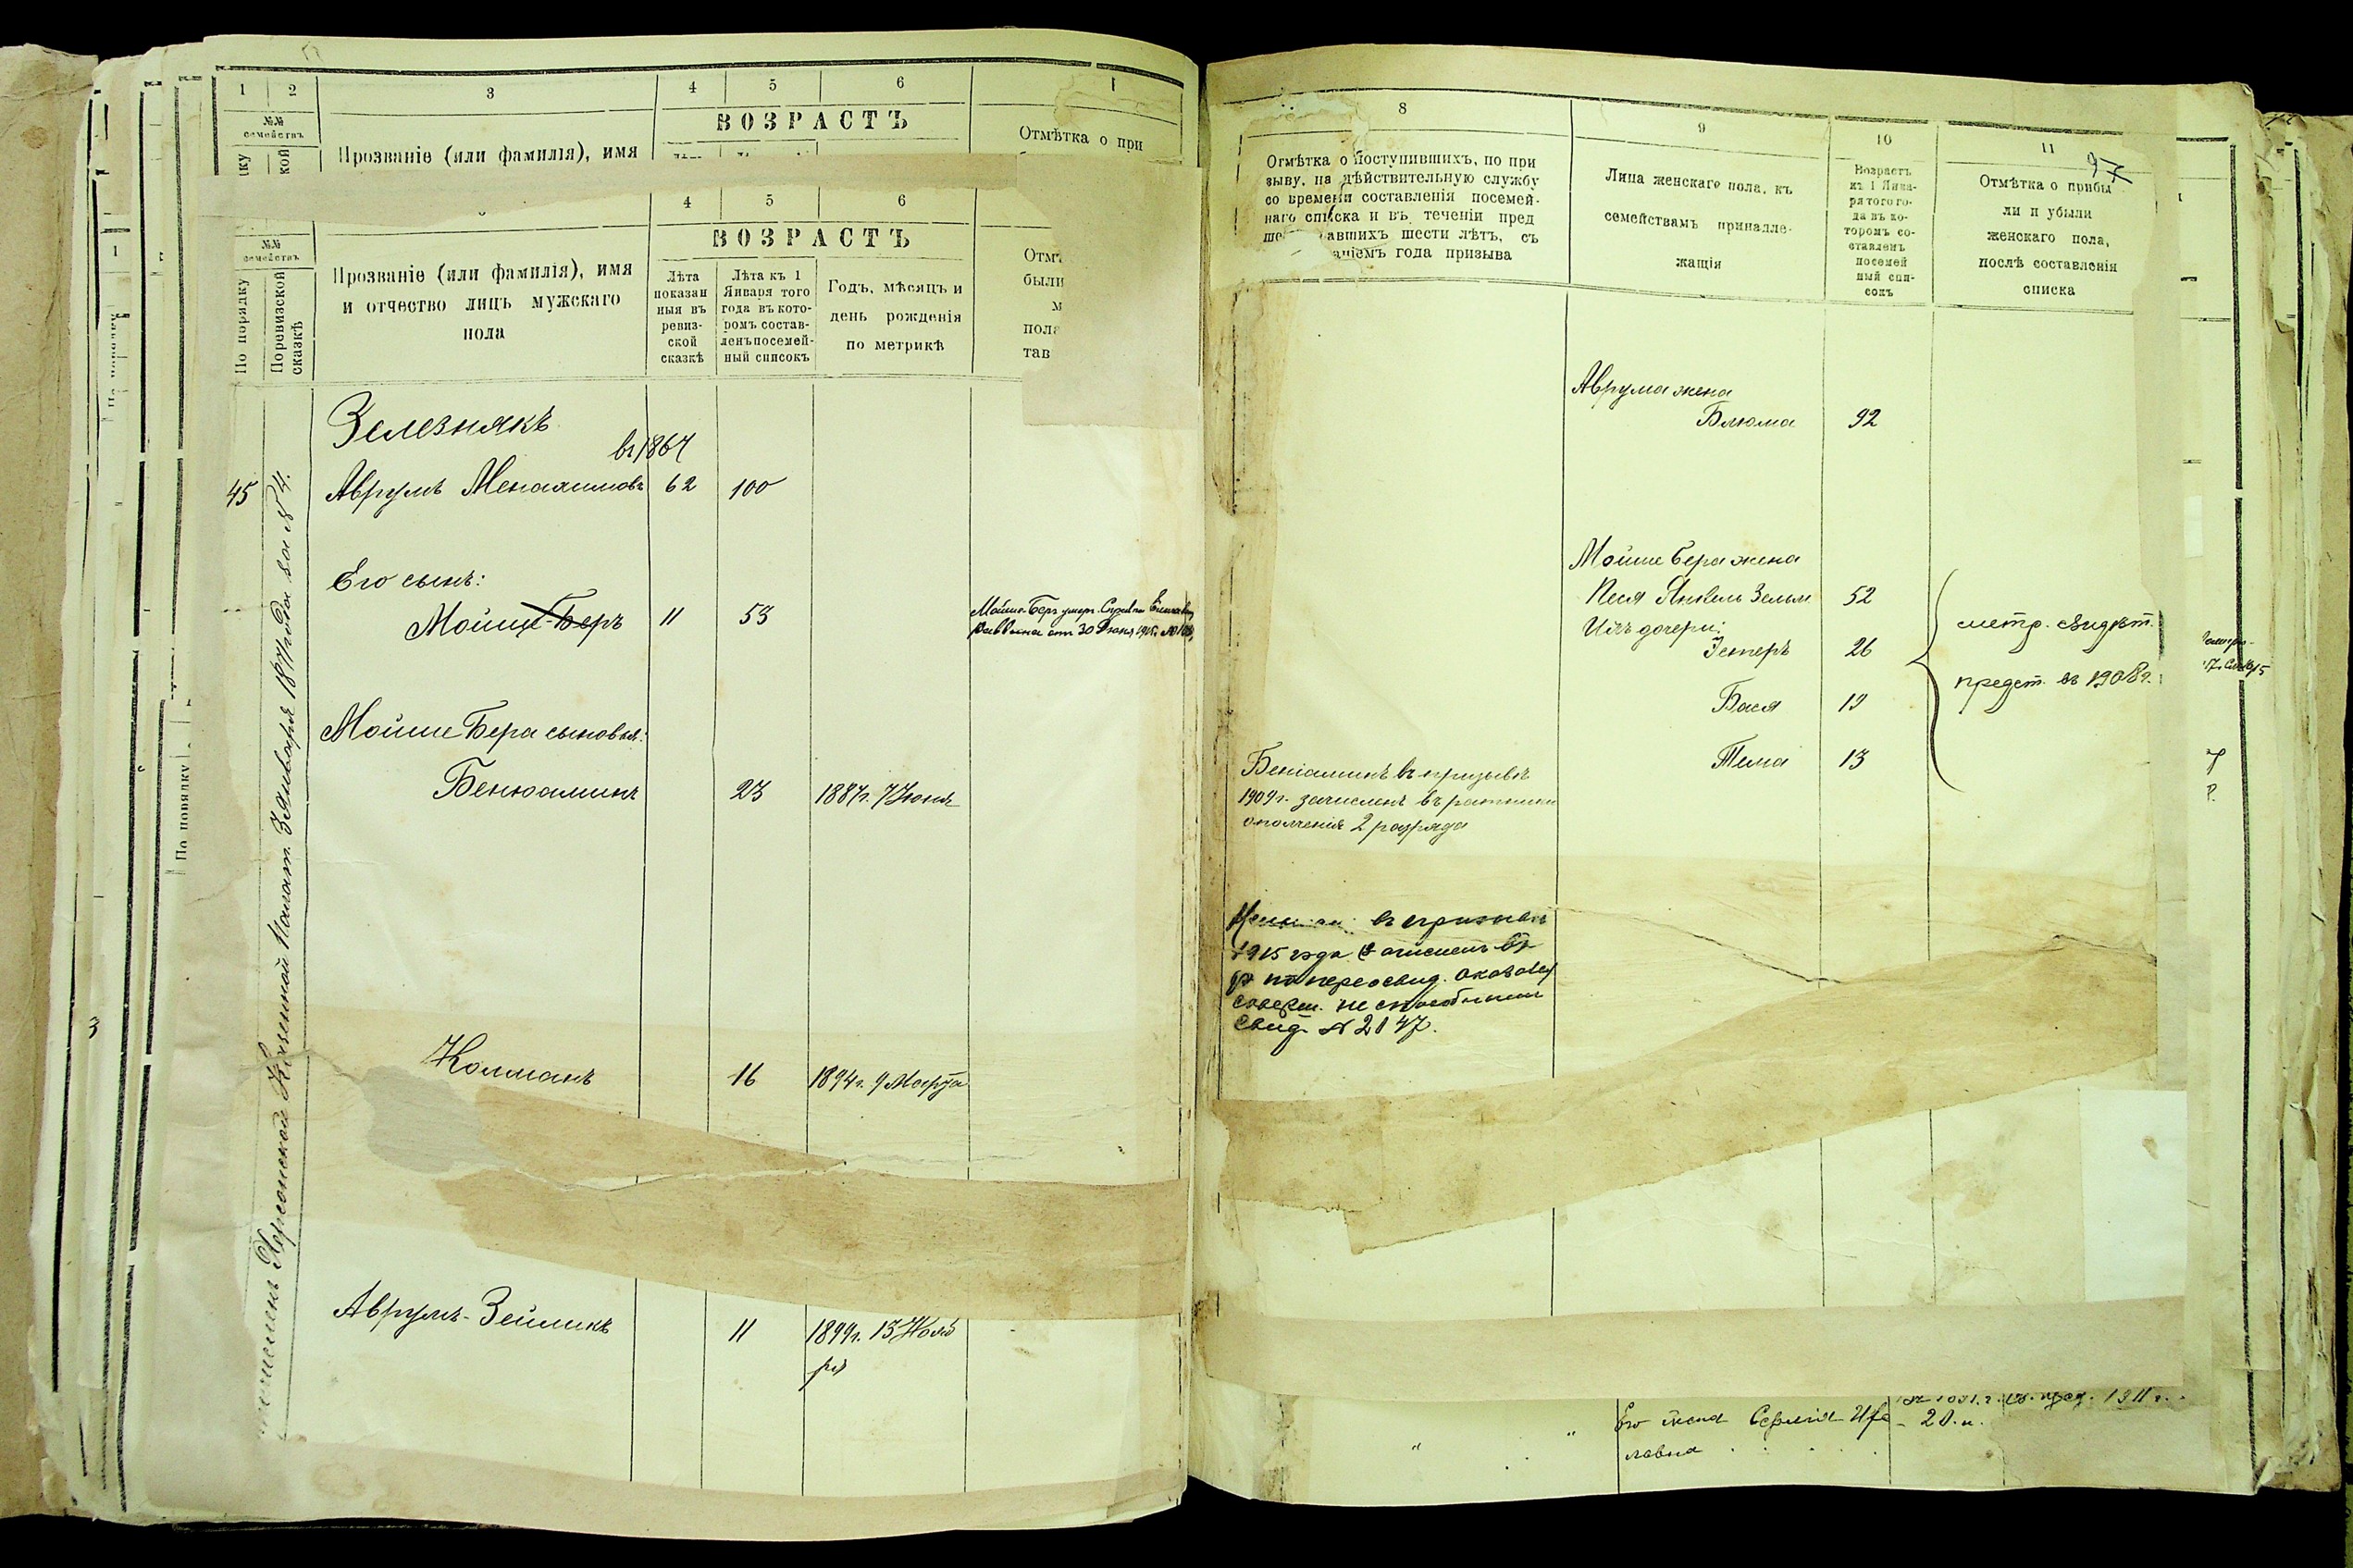 1 2 3 4 5 6
№№ семействъ
ВОЗРАСТЪ
Прозваніе (или фамилія), имя
Отмѣтка о при
4 5 6
№№ семействъ
По порядку
Поревизской сказкѣ
Прозваніе (или фамилія), имя
и отчество лицъ мужскаго
пола
ВОЗРАСТЪ
Лѣта
показан
ныя въ
ревиз-
ской
сказкѣ
Лѣта къ 1
Января того
года въ кото-
ромъ состав-
ленъ посемей-
ный списокъ
Годъ, мѣсяцъ и
день рожденія
по метрикѣ
были
пола
тав
Зелезнякъ
въ 1867
45 Аврумъ Менахимовъ 62 100
Его сынъ:
Мойше-Беръ 11 53
Мойше-Беръ умеръ.
раввина отъ 30 Іюня
Мойше Бера сыновья:
Бенюаминъ 23 1887г. 7 Іюня
Колманъ 16 1894г. 9 Марта
Аврумъ-Зейликъ 11 1899г. 13 Нояб
ря
Херсонской Казенной Палат. 3 Января 187 года за №4.
8 9 10 11
97
Отмѣтка о поступившихъ, по при
зыву, на дѣйствительную службу
со времени составленія посемей-
наго списка и въ теченіи пред
авшихъ шести лѣтъ, съ
аніемъ года призыва
Лица женскаго пола, къ
семействамъ принадле-
жащія
Возрастъ
къ 1 Янва-
ря того го-
да въ ко-
торомъ со-
ставленъ
посемей
ный спи-
сокъ
Отмѣтка о прибы
ли и убыли
женскаго пола,
послѣ составленія
списка
Аврума жена
Блюма 92
Мойше Бера жена
Песя Янкель Зельм 52
Ихъ дочери:
Эстеръ 26
Бася 19
Тема 13
метр. свидѣт.
предст. въ 1908г.
Беніаминъ въ призывъ
1909г. зачисленъ въ ратники
ополченія 2 разряда
въ призывъ
1915 года
по переосвид. оказался
соверш. не способнымъ
свид. № 2147.
1911 г.
Его жена 20.
лавна
По порядку